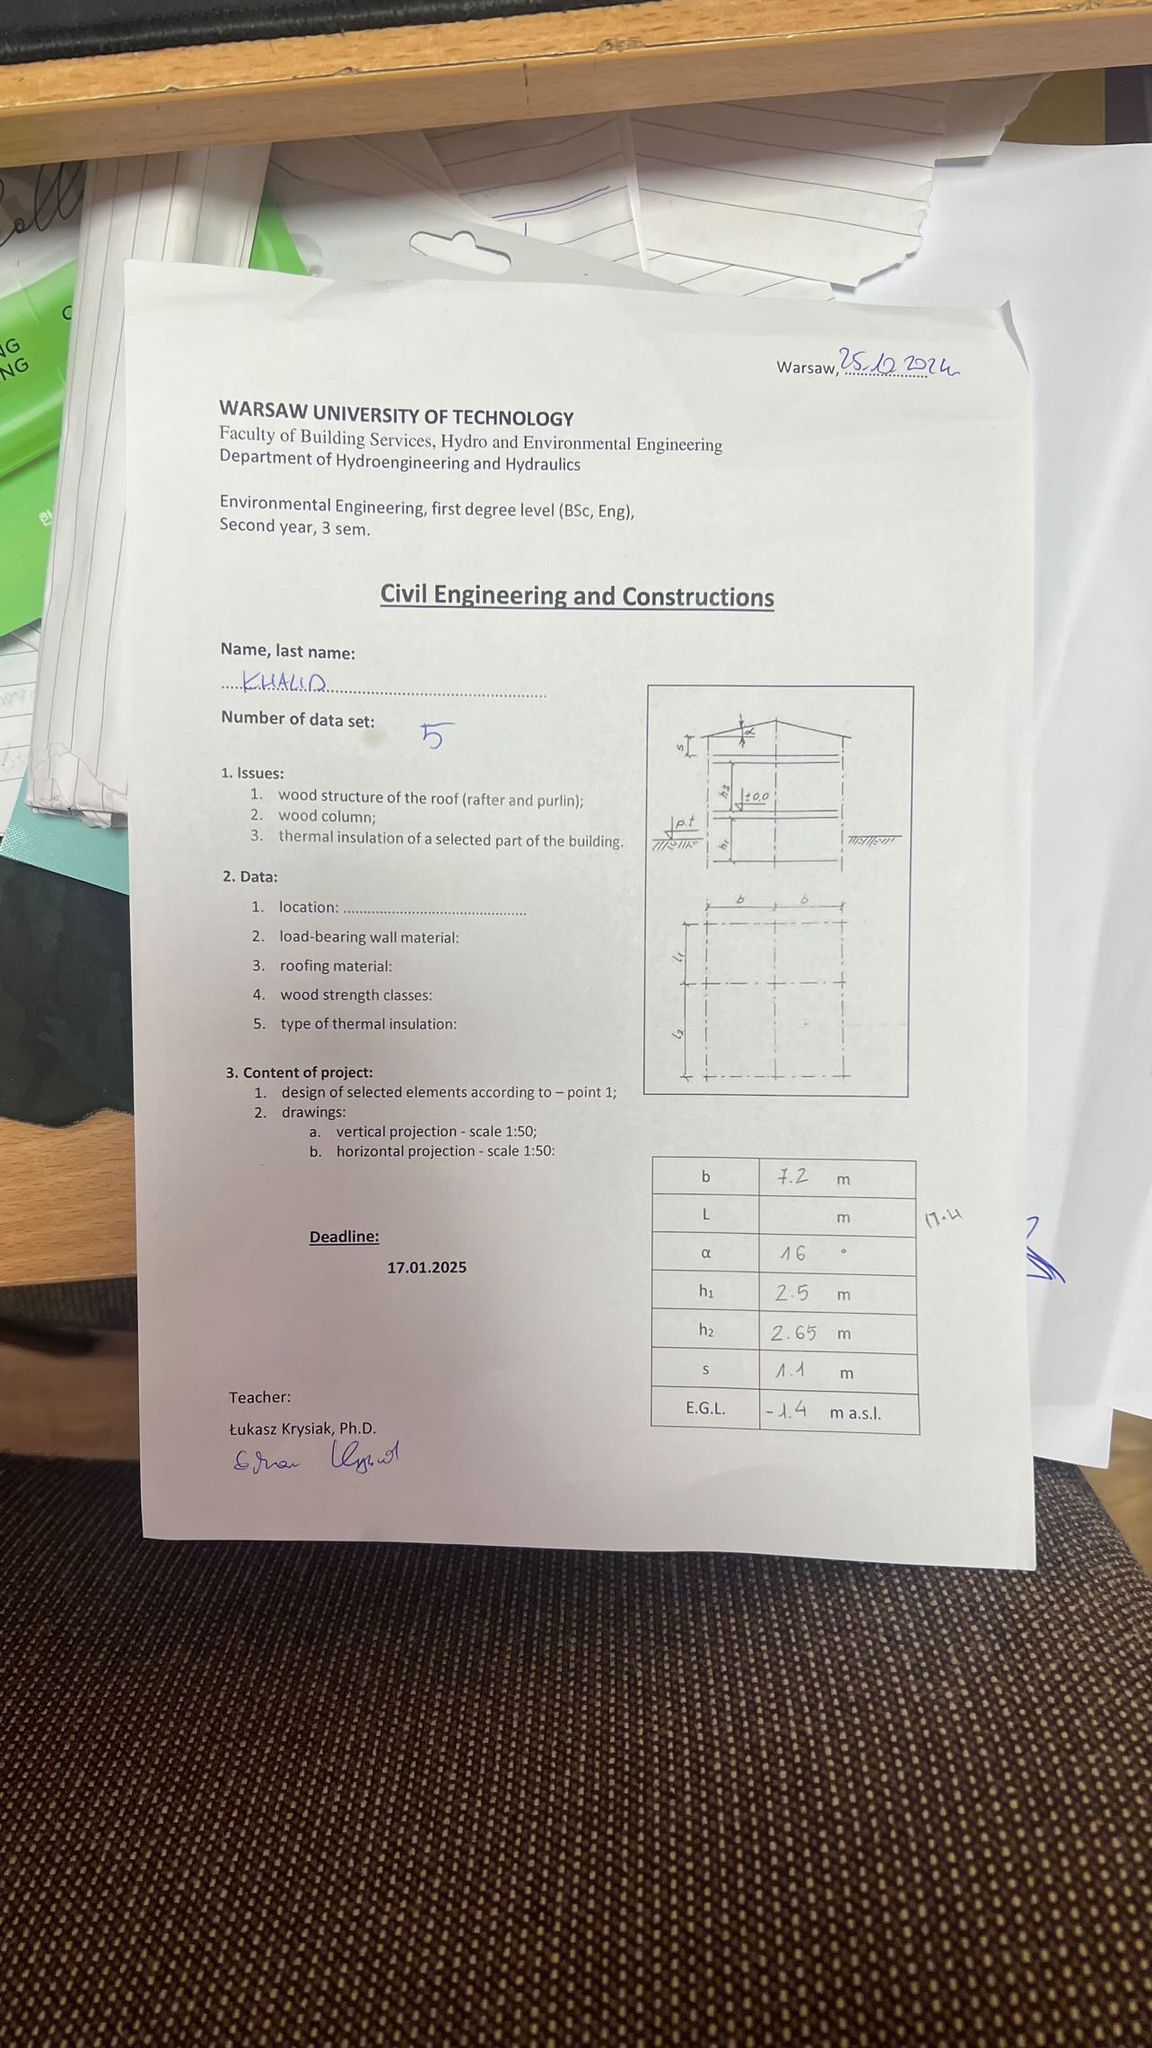 NG
NG
Warsaw, 25.10.2024
WARSAW UNIVERSITY OF TECHNOLOGY
Faculty of Building Services, Hydro and Environmental Engineering
Department of Hydroengineering and Hydraulics
Environmental Engineering, first degree level (BSc, Eng),
Second year, 3 sem.
Civil Engineering and Constructions
Name, last name:
KHALID
Number of data set: 5
1. Issues:
1. wood structure of the roof (rafter and purlin);
2. wood column;
3. thermal insulation of a selected part of the building.
2. Data:
1. location: ..............................................
2. load-bearing wall material:
3. roofing material:
4. wood strength classes:
5. type of thermal insulation:
3. Content of project:
1. design of selected elements according to – point 1;
2. drawings:
a. vertical projection - scale 1:50;
b. horizontal projection - scale 1:50:
Deadline:
17.01.2025
Teacher:
Łukasz Krysiak, Ph.D.
α
s
h₂
±0,0
p.t
h₁
b b
l₁
l₂
b 7.2 m
L m 17.4
α 16 °
h₁ 2.5 m
h₂ 2.65 m
s 1.1 m
E.G.L. -1.4 m a.s.l.